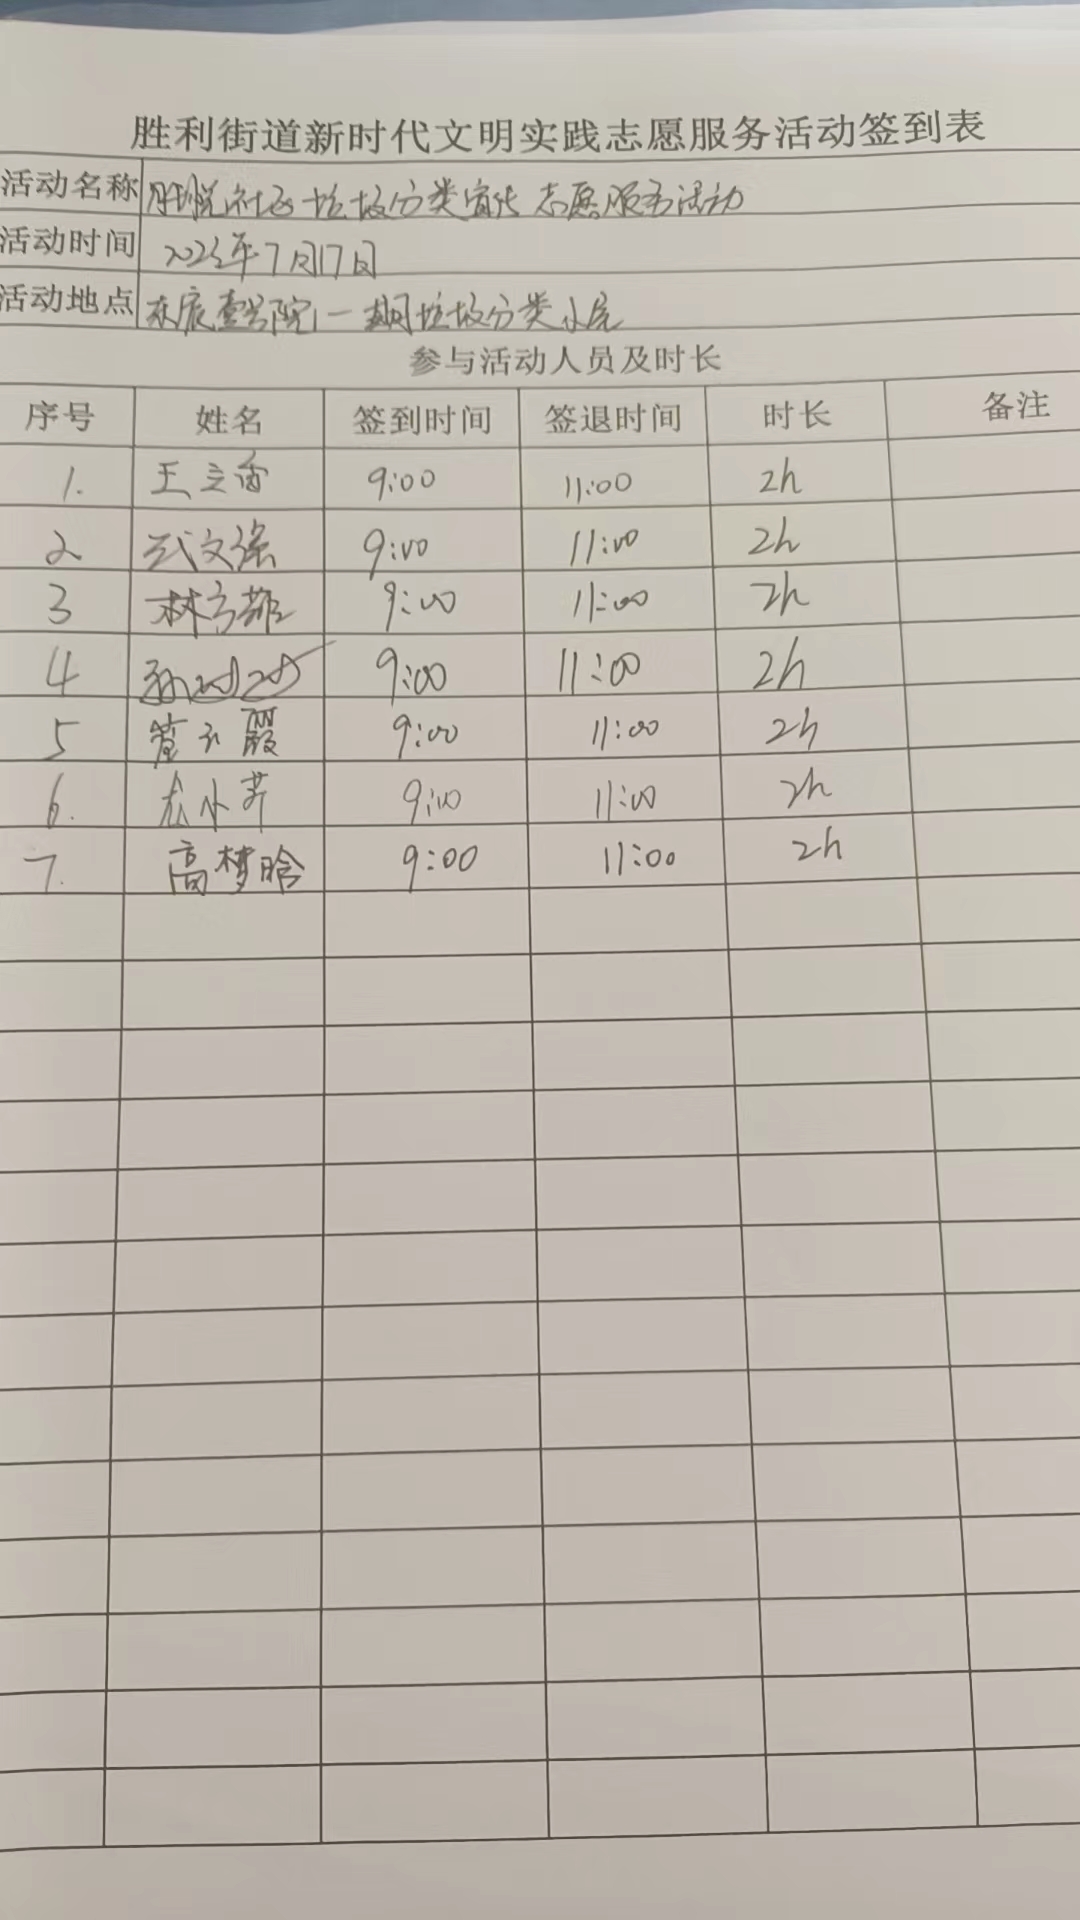 胜利街道新时代文明实践志愿服务活动签到表
活动名称 社区垃圾分类宣传志愿服务活动
活动时间 2023年7月17日
活动地点 东辰壹号院一期垃圾分类小屋
参与活动人员及时长
序号 姓名 签到时间 签退时间 时长 备注
1. 王 9:00 11:00 2h
2 武文强 9:00 11:00 2h
3 林 9:00 11:00 2h
4 孙 9:00 11:00 2h
5 管 霞 9:00 11:00 2h
6. 小芹 9:00 11:00 2h
7. 高梦晗 9:00 11:00 2h